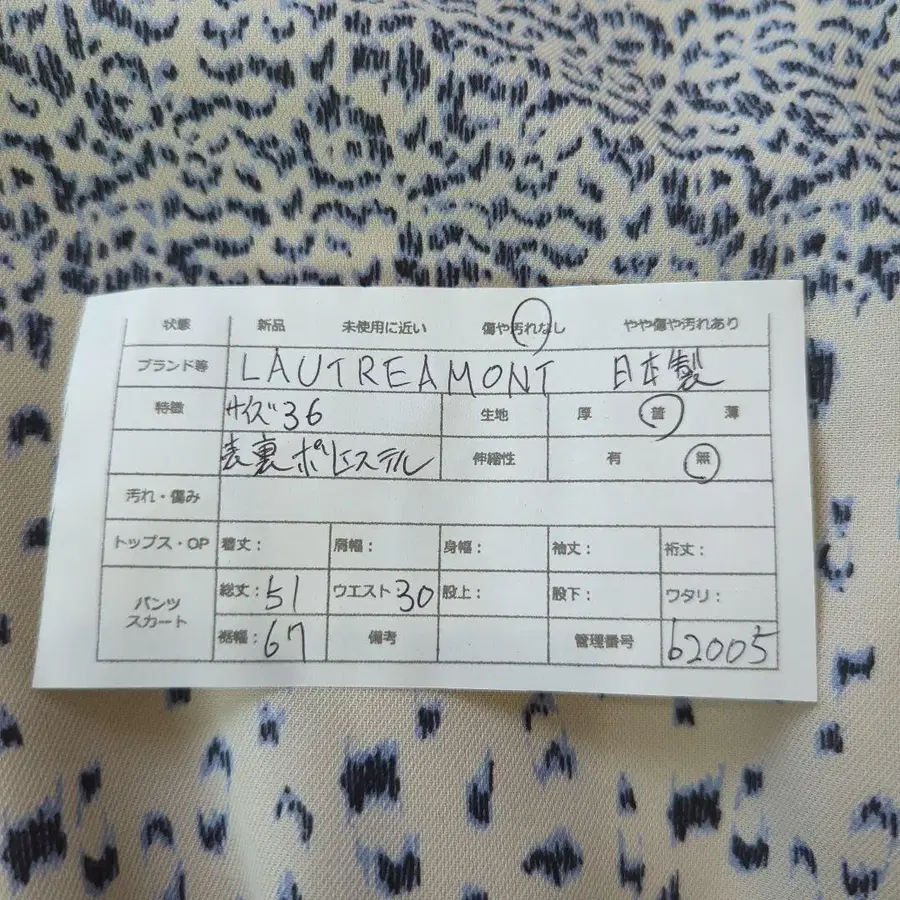 状態 新品 未使用に近い 傷や汚れなし やや傷や汚れあり
ブランド等 LAUTREAMONT 日本製
特徴 サイズ36 生地 厚 普 薄
表裏ポリエステル 伸縮性 有 無
汚れ・傷み
トップス・OP 着丈: 肩幅: 身幅: 袖丈: 裄丈:
パンツ スカート 総丈:51 ウエスト30 股上: 股下: ワタリ:
裾幅:67 備考 管理番号 62005